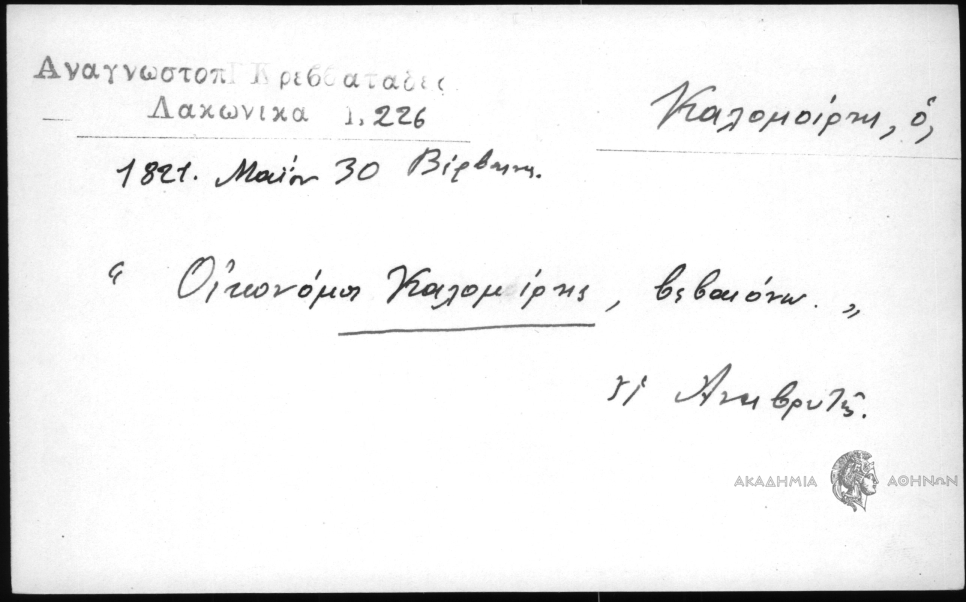 Αναγνωστοπ Γ Κρεββαταδες
Λακωνικα 1, 226
Καλομοίρης, ὁ,
1821. Μαΐου 30 Βέρβαινα.
“ Οἰκονόμος Καλομοίρης, βεβαιόνω. „
Ἀναβρυτῆς.
ΑΚΑΔΗΜΙΑ ΑΘΗΝΩΝ